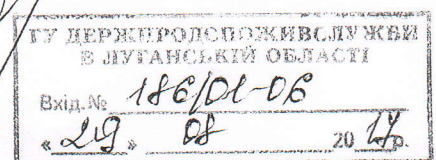 ГУ ДЕРЖПРОДСПОЖИВСЛУЖБИ
В ЛУГАНСЬКІЙ ОБЛАСТІ
Вхід.№ 186/01-06
« 29 » 08 2017р.